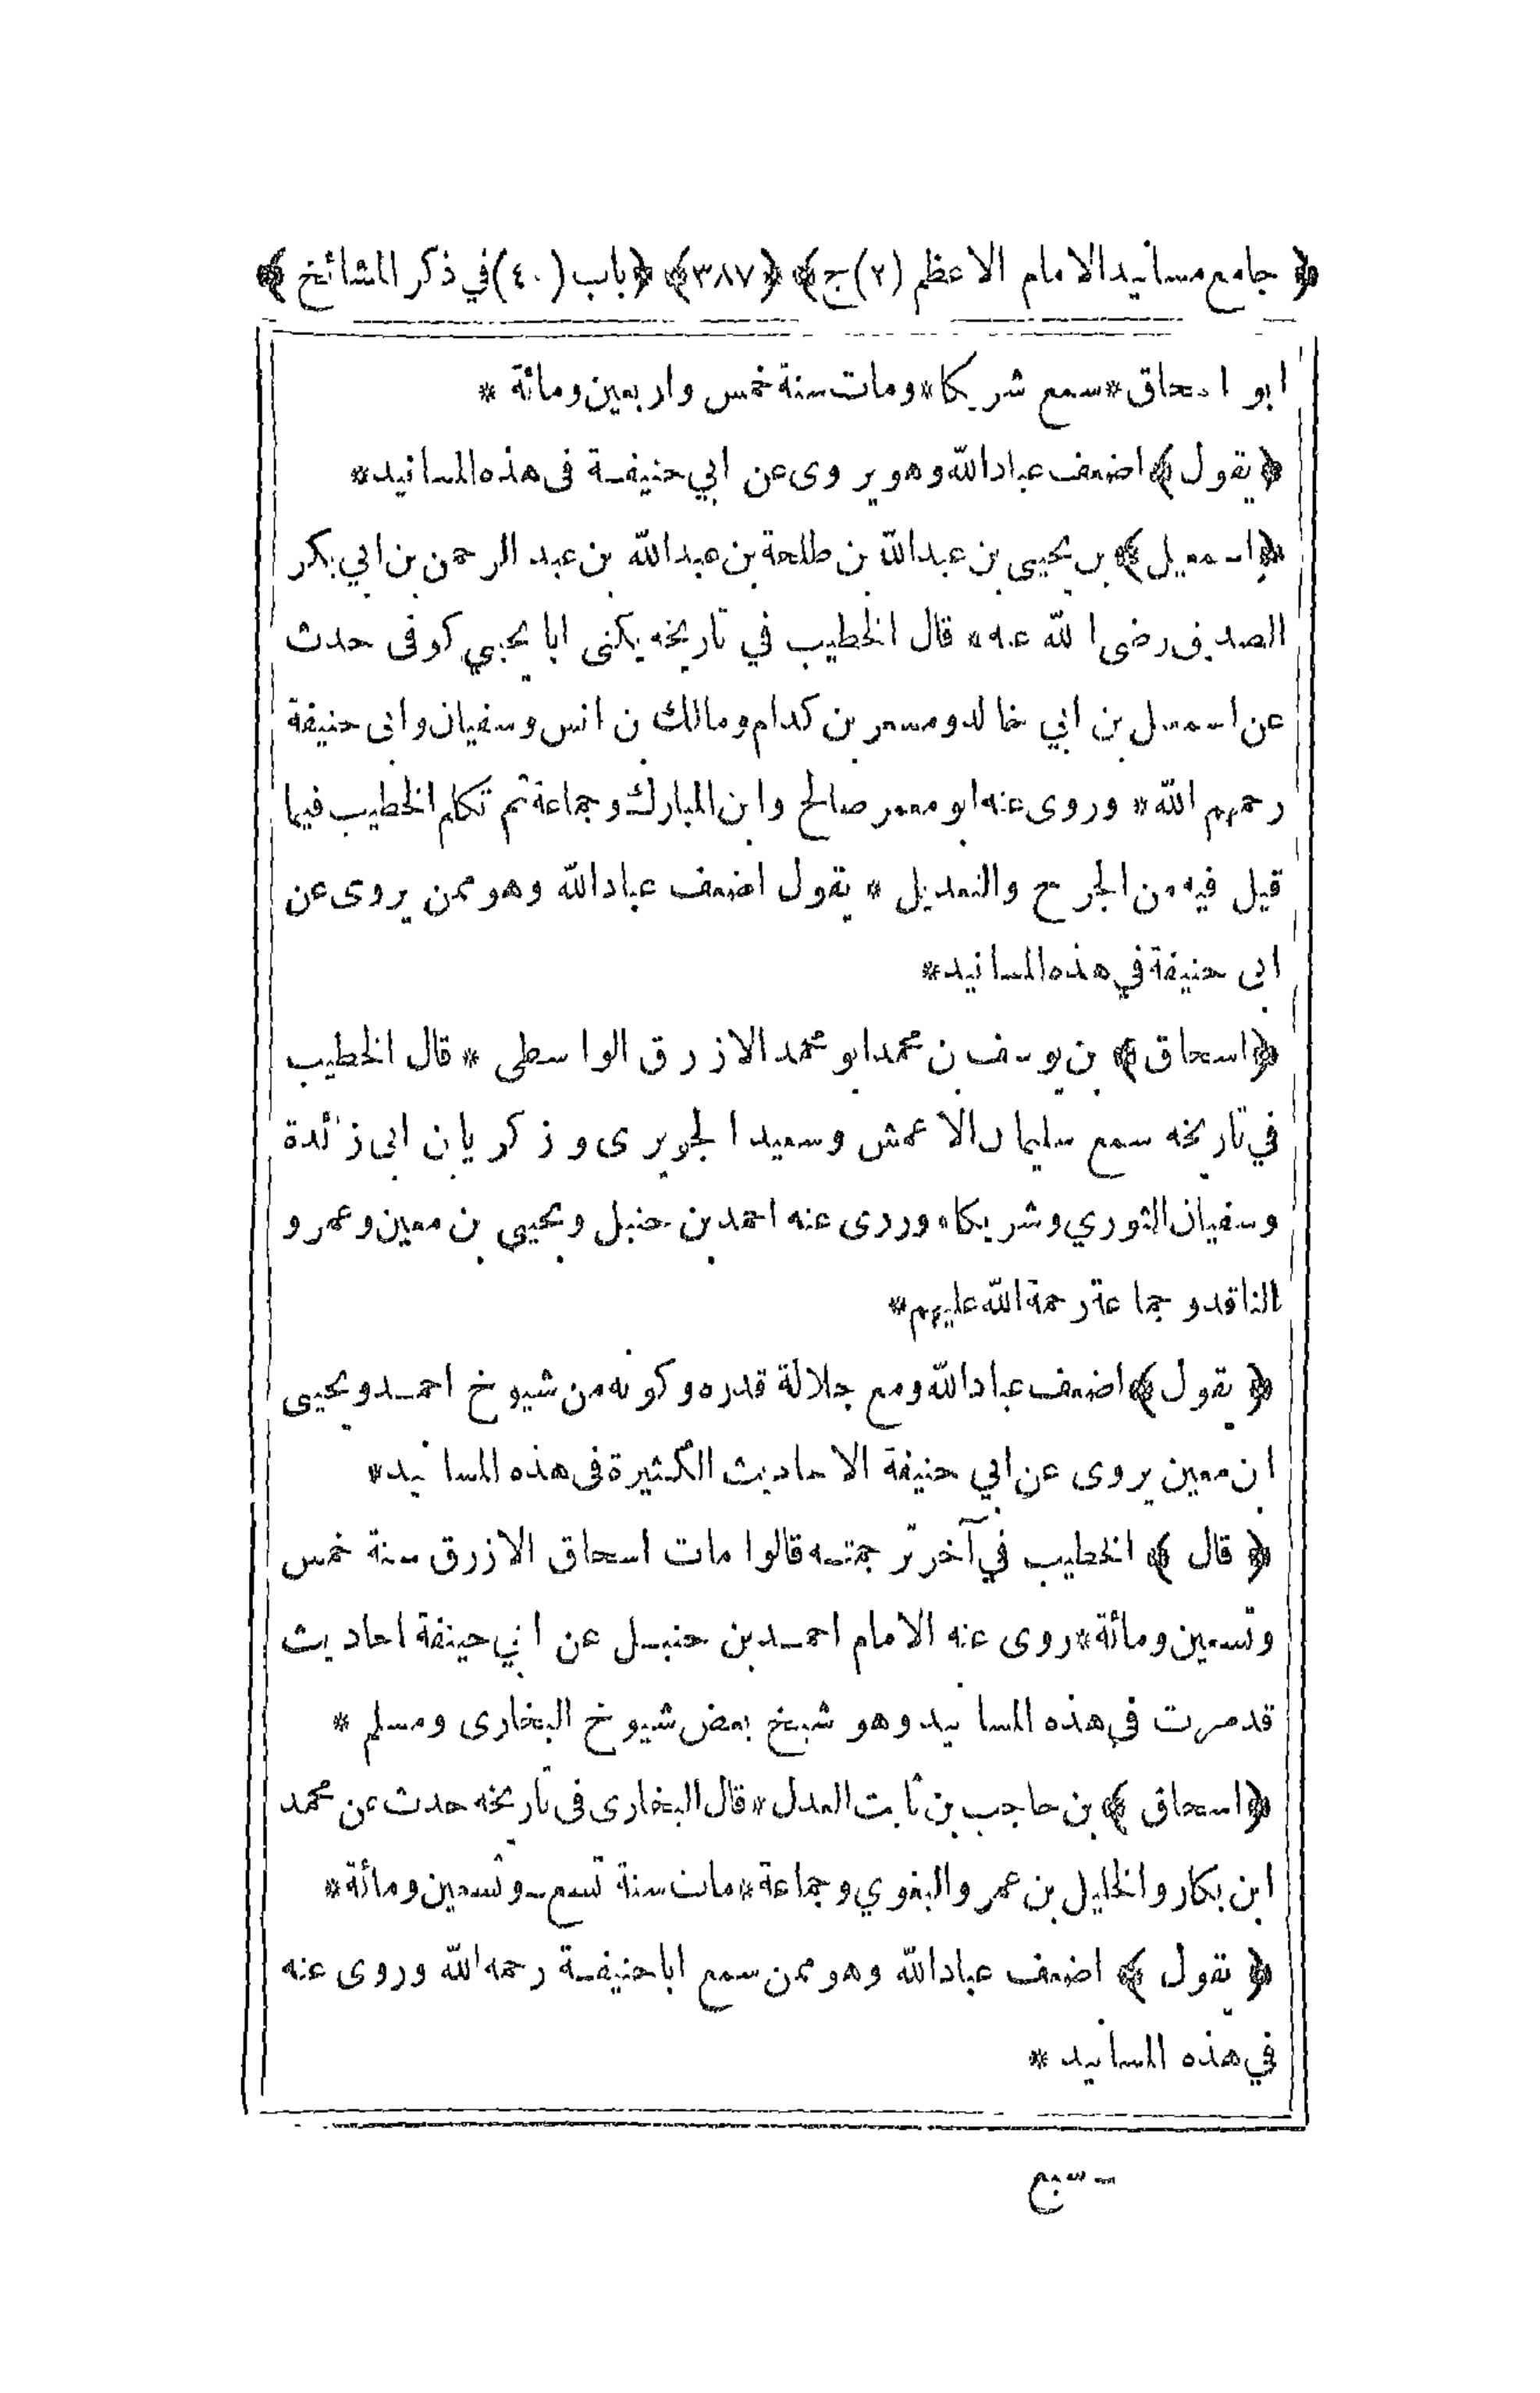 ﴿ جامع مسانيد الامام الاعظم (٢) ج﴾ ﴿٣٨٧﴾ ﴿باب (٤٠) في ذكر المشائخ ﴾
ابو اسحاق * سمع شريكا * ومات سنة خمس واربعين ومائة *
﴿ يقول ﴾ اضعف عباد الله وهو يروى عن ابي حنيفة فى هذه المسانيد *
﴿اسمعيل﴾ بن يحيى بن عبدالله بن طلحة بن عبدالله بن عبد الرحمن بن ابي بكر
الصديق رضى الله عنه * قال الخطيب في تاريخه يكنى ابا يحيي كوفى حدث
عن اسمعيل بن ابي خالد ومسعر بن كدام ومالك بن انس وسفيان وابى حنيفة
رحمهم الله * وروى عنه ابو معمر صالح وابن المبارك وجماعة ثم تكلم الخطيب فيما
قيل فيه من الجرح والتعديل * يقول اضعف عباد الله وهو ممن يروى عن
ابى حنيفة في هذه المسانيد *
﴿اسحاق ﴾ بن يوسف بن محمد ابو محمد الازرق الواسطى * قال الخطيب
في تاريخه سمع سليمان الاعمش وسعيد الجريرى وزكريا بن ابى زائدة
وسفيان الثوري وشريكا * وروى عنه احمد بن حنبل ويحيى بن معين وعمرو
الناقد وجماعة رحمة الله عليهم *
﴿ يقول﴾ اضعف عباد الله ومع جلالة قدره وكونه من شيوخ احمد ويحيى
ابن معين يروى عن ابي حنيفة الاحاديث الكثيرة فى هذه المسانيد *
﴿ قال ﴾ الخطيب في آخر ترجمته قالوا مات اسحاق الازرق سنة خمس
وتسعين ومائة * روى عنه الامام احمد بن حنبل عن ابي حنيفة احاديث
قد مرت في هذه المسانيد وهو شيخ بعض شيوخ البخارى ومسلم *
﴿اسحاق ﴾ بن حاجب بن ثابت العدل * قال البخارى فى تاريخه حدث عن محمد
ابن بكار والخليل بن عمر والبغوي وجماعة * مات سنة تسع وتسعين ومائة *
﴿ يقول ﴾ اضعف عباد الله وهو ممن سمع اباحنيفة رحمه الله وروى عنه
في هذه المسانيد *